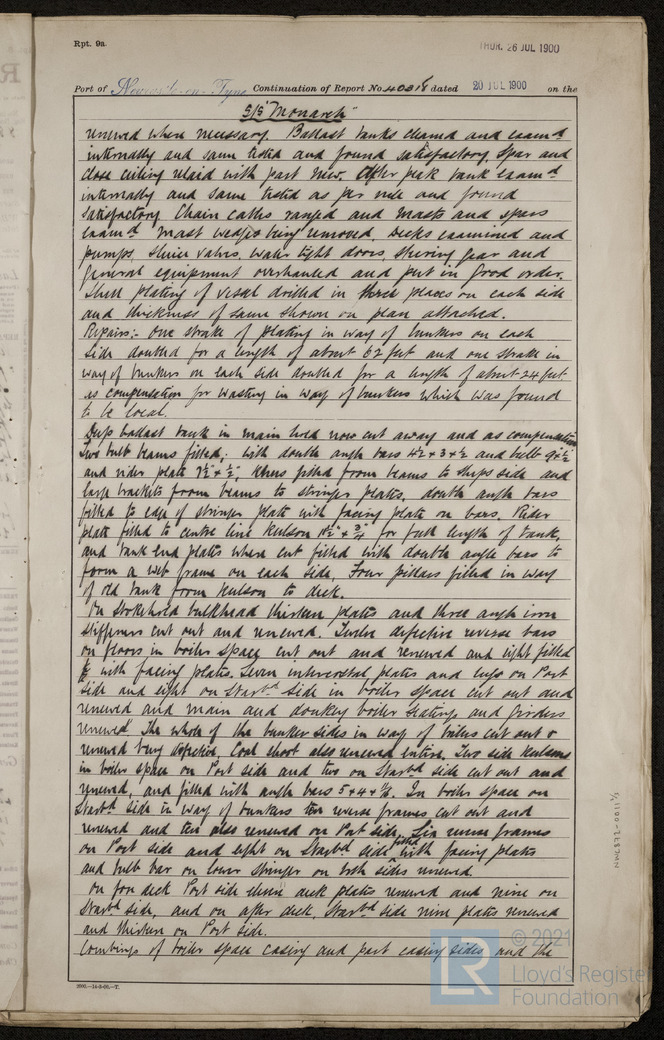 Rpt. 9a.
THUR. 26 JUL 1900
Port of Newcastle-on-Tyne Continuation of Report No. 40318 dated 20 JUL 1900 on the
S/S "Monarch"
renewed where necessary. Ballast tanks cleaned and exam^d
internally and same tested and found satisfactory, Spar and
close ceiling relaid with part new. After peak tank exam^d
internally and same tested as per rule and found
satisfactory. Chain cables ranged and masts and spars
exam^d mast wedges being removed. Decks examined and
pumps, sluice valves, water tight doors, steering gear and
general equipment overhauled and put in good order.
Shell plating of vessel drilled in three places on each side
and thickness of same shown on plan attached.
Repairs:- One strake of plating in way of bunkers on each
side doubled for a length of about 62 feet and one strake in
way of bunkers on each side doubled for a length of about 24 feet.
as compensation for wasting in way of bunkers which was found
to be local.
Deep ballast tank in main hold now cut away and as compensation
two bulb beams fitted; with double angle bars and bulb
and rider plate knees fitted from beams to ships side and
large brackets from beams to stringer plates, double angle bars
fitted to edge of stringer plate with facing plate on bars. Rider
plate fitted to centre line keelson for full length of tank,
and tank end plates where cut fitted with double angle bars to
form a web frame on each side, Four pillars fitted in way
of old tank from keelson to deck.
On stokehold bulkhead thirteen plates and three angle iron
stiffeners cut out and renewed. Twelve defective reverse bars
on floors in boiler space cut out and renewed and eight fitted
with facing plates. Seven intercostal plates and lugs on Port
side and eight on Starb^d side in boiler space cut out and
renewed and main and donkey boiler seatings and girders
renewed. The whole of the bunker sides in way of boilers cut out &
renewed being defective. Coal shoot also renewed entire. Two side keelsons
in boiler space on Port side and two on Starb^d side cut out and
renewed, and fitted with angle bars 5 x 4 x ½. In boiler space on
Starb^d side in way of bunkers ten reverse frames cut out and
renewed and ten also renewed on Port side. Six reverse frames
on Port side and eight on Starb^d side fitted with facing plates
and bulb bar on lower stringer on both sides renewed.
On fore deck Port side eleven deck plates renewed and nine on
Starb^d side, and on after deck, Starb^d side nine plates renewed
and thirteen on Port side.
Combings of boiler space casing and part casing sides, and the
NWC872-0011 1/2
© 2021
LR
Lloyd's Register
Foundation